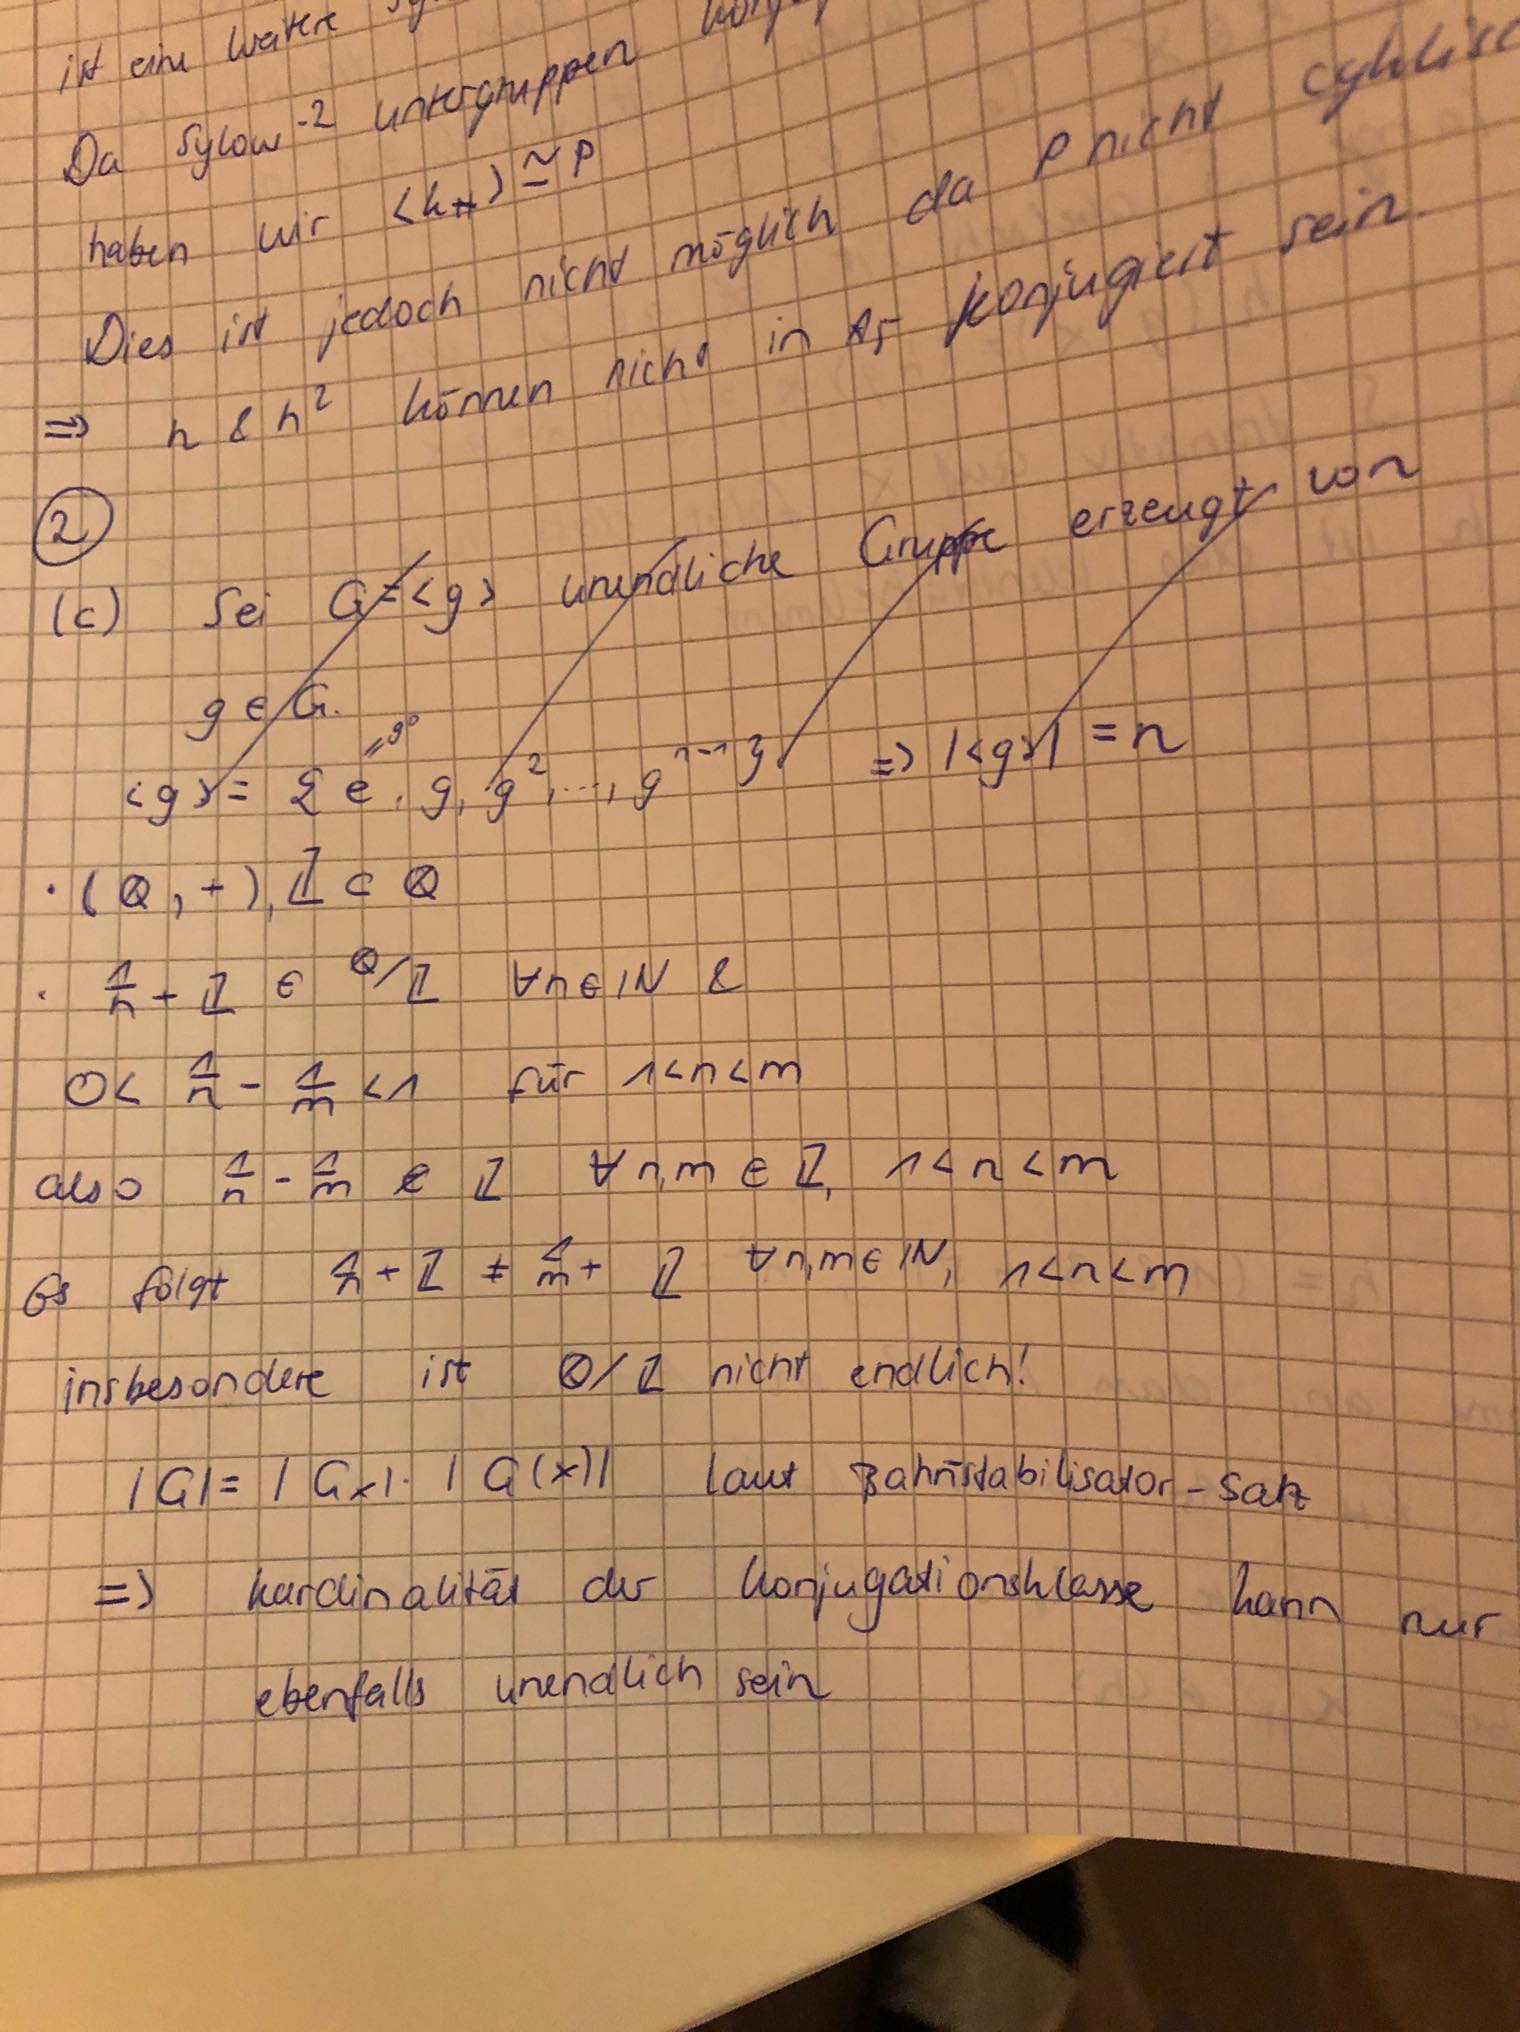 ist eine weitere
Da Sylow-2 untergruppen
haben wir <h> ≃ P
Dies ist jedoch nicht möglich da P nicht cyklisc
=> h & h² können nicht in A₅ konjugiert sein
2
(c) Sei G=<g> unendliche Gruppe erzeugt von
g ∈ G.
=g⁰
<g> = { e, g, g², ..., gⁿ⁻¹ } => |<g>| = n
· (Q, +), Z ⊂ Q
· 1/n + Z ∈ Q/Z ∀n∈IN &
0 < 1/n - 1/m < 1 für 1<n<m
also 1/n - 1/m ∉ Z ∀n,m ∈ Z, 1<n<m
Es folgt 1/n + Z ≠ 1/m + Z ∀n,m∈IN, 1<n<m
insbesondere ist Q/Z nicht endlich!
|G| = |Gₓ| · |G(x)| laut Bahnstabilisator-Satz
=> kardinalität der konjugationsklasse kann nur
ebenfalls unendlich sein